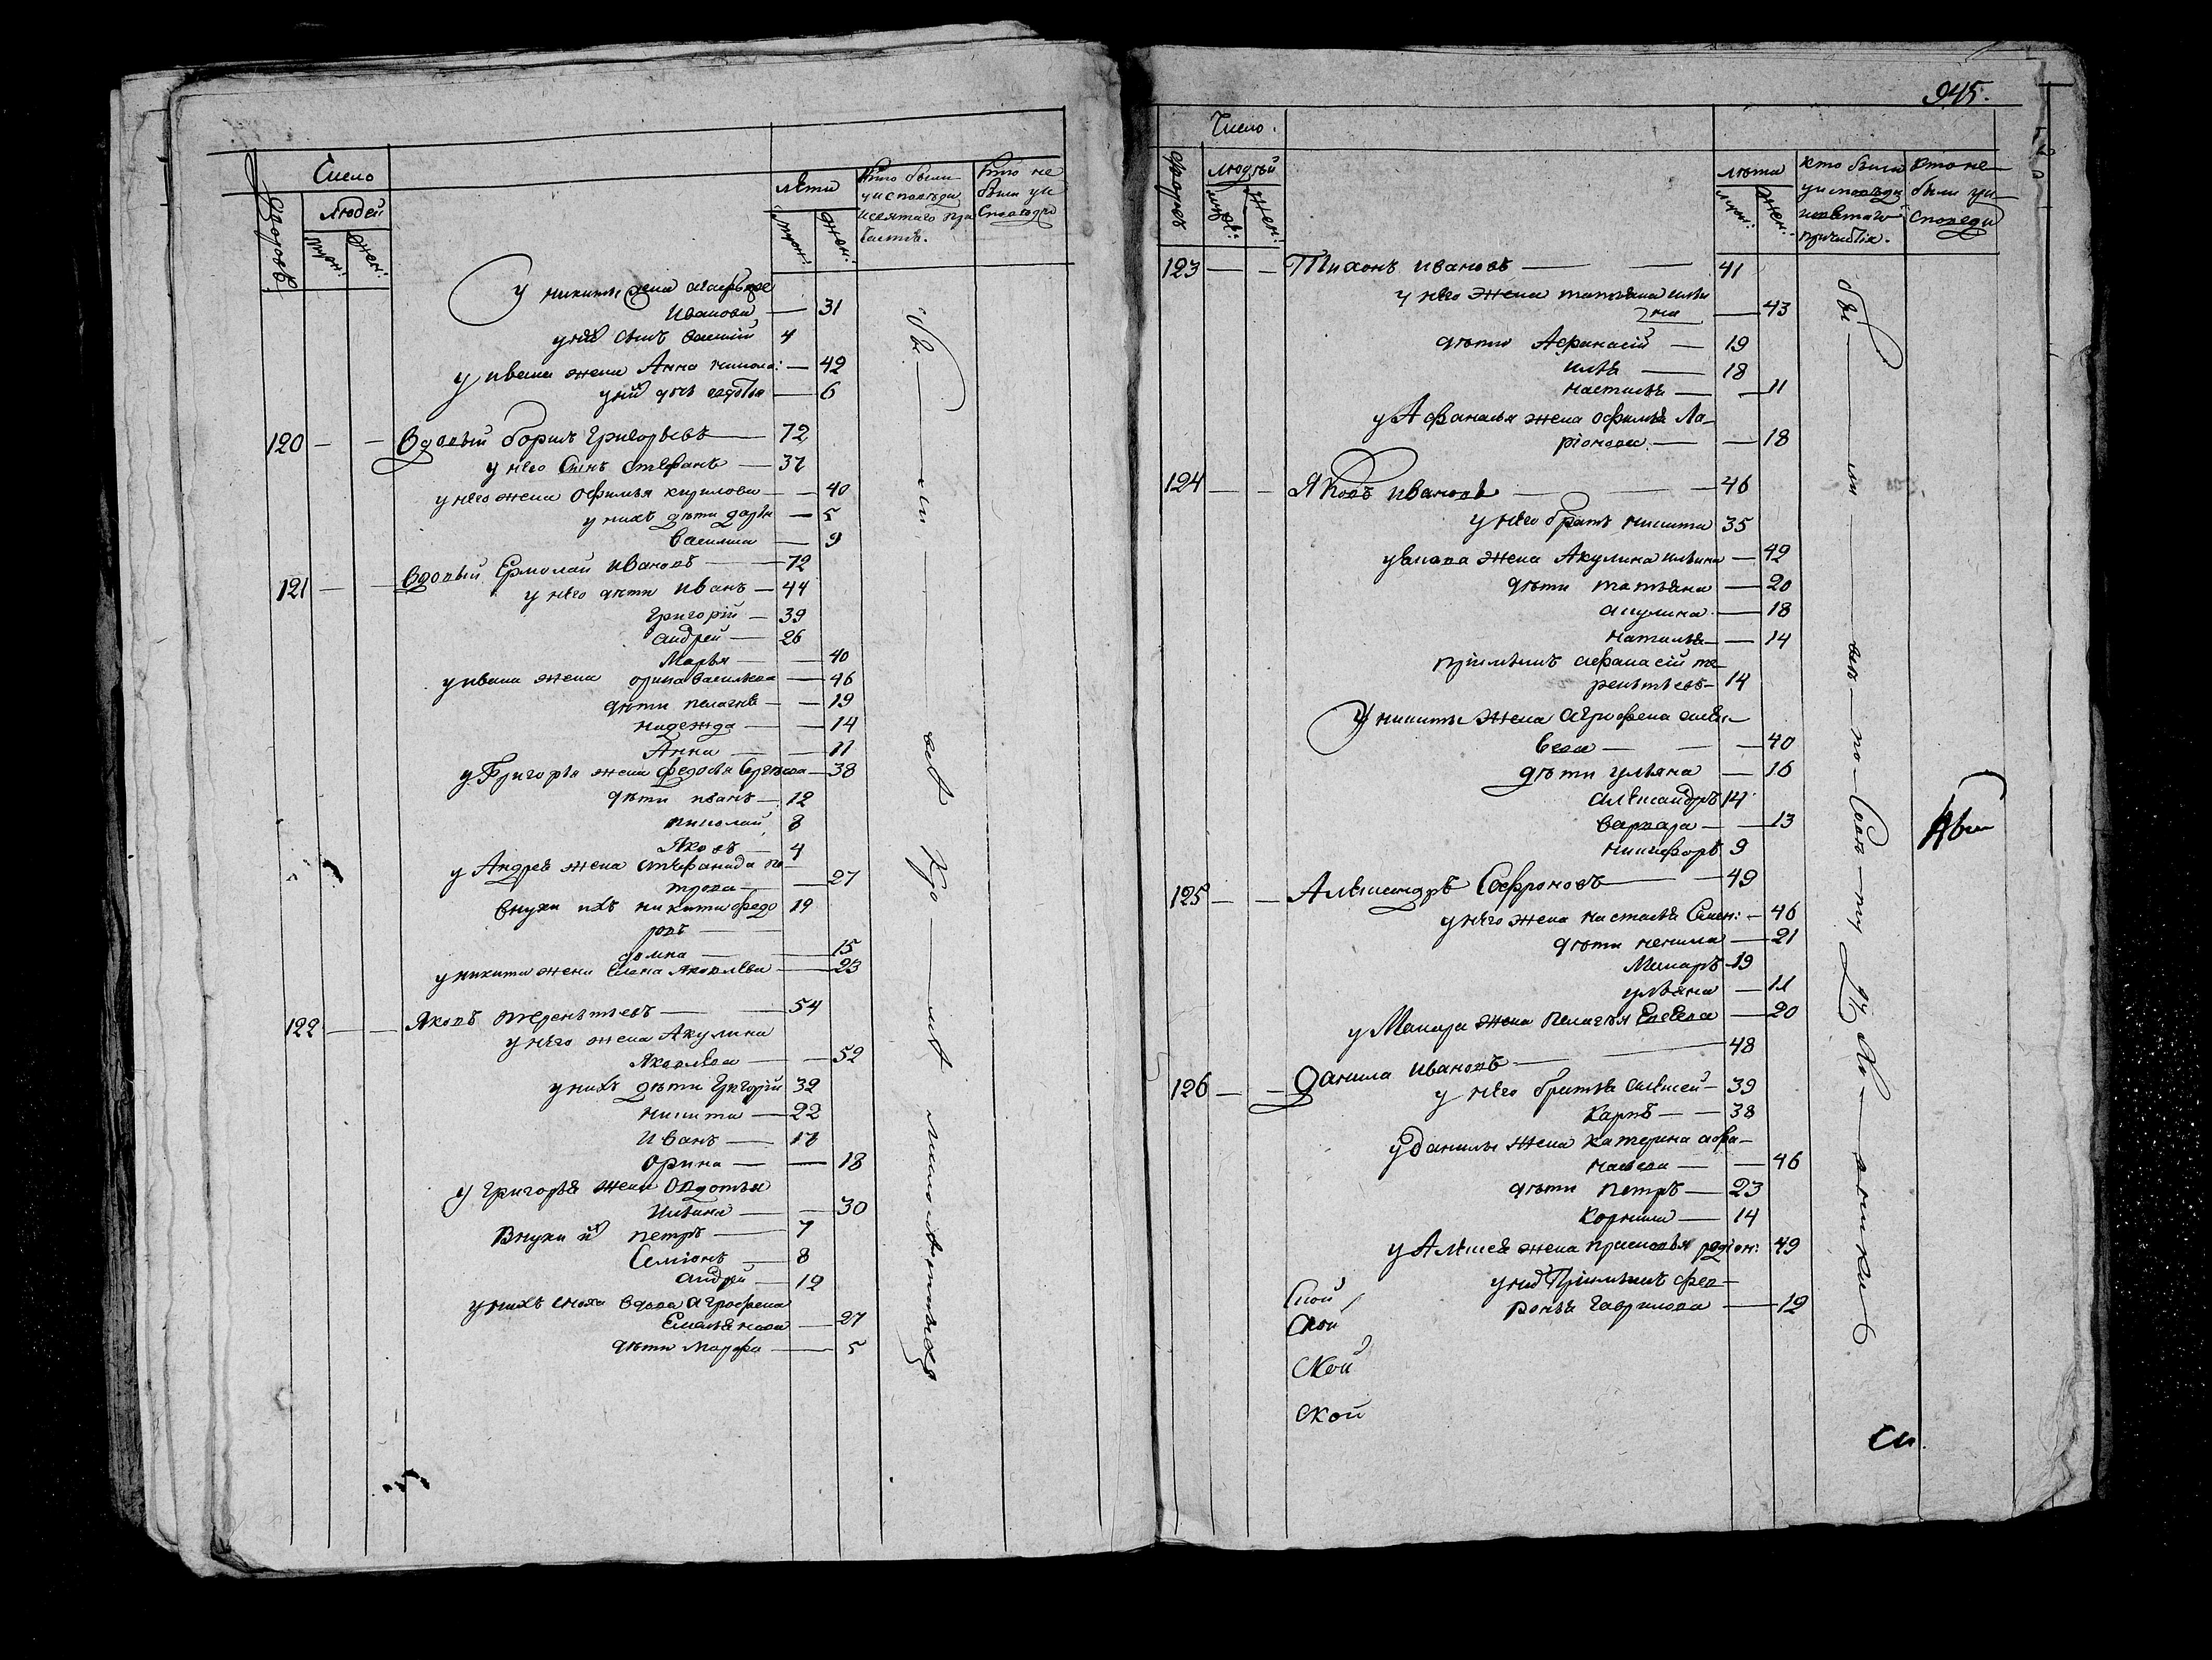 Число
Дворовъ
Людей
муж:
жен:
лѣта
муж:
жен:
Кто были
у исповѣди
и святаго при
частія.
Кто не
были у и
сповѣди
У никиты жена
Иванова — 31
у нихъ сынъ василій 4
у ивана жена Анна никола: — 42
у них дочь авдотья — 6
120 — — Вдовый борисъ Григорьевъ — 72
у него Сынъ стефанъ — 37
у него жена Офимья кирилова — 40
у нихъ дѣти дарья — 5
василиса — 9
121 — — Вдовый Ермолай Ивановъ — 72
у него дѣти Иванъ — 44
Григорій — 39
андрей — 26
Марья — 40
у ивана жена орина васильева — 46
дѣти пелагея — 19
надежда — 14
Анна — 11
у Григорья жена федосья Сергѣева — 38
дѣти иванъ — 12
николай 8
Яковъ — 4
у Андрея жена стефанида пе-
трова — 27
внуки ихъ никита федо 19
ровъ —
домна — 15
у никиты жена Елена Яковлева — 23
122 — — Яковъ терентьевъ — 54
у него жена Акулина
Яковлева — 52
у нихъ дѣти Григорій 32
никита — 22
Иванъ — 17
Орина — 18
у Григорья жена Овдотья
Ильина — 30
Внуки их петръ — 7
Семіонъ — 8
андрей — 12
у нихъ сноха вдова агрофена
Емельянова — 27
дѣти Марфа — 5
бы — ли — всѣ
945.
Число.
дворовъ
людѣй
муж:
жен:
лѣта
муж:
жен:
кто были
у исповѣди
и святаго
причастія.
кто не
были у и
споведи
123 — — Тихонъ ивановъ — 41
у него жена татьяна ильи
на — 43
дѣти Афанасій — 19
илья — 18
настасья — 11
у Афанасья жена офимья Ла-
ріонова — 18
124 — — Яковъ ивановъ — 46
у него братъ никита 35
у якова жена Акулина ильина — 42
дѣти татьяна — 20
акулина — 18
наталья — 14
пріимышъ афанасій те-
рентьевъ — 14
У никиты жена агрофена алек-
сева — 40
дѣти ульяна — 16
александръ 14
варвара — 13
никифоръ 9
125 — — Александръ Софроновъ — 49
у него жена настасья Семен: — 46
дѣти ненила — 21
Макаръ — 19
ульяна — 11
у Макара жена пелагѣя Елевева — 20
126 — — Данила ивановъ — 48
у него братья алексей — 39
Карпъ — 38
У данилы жена катерина афа-
насева — 46
дѣти петръ — 23
Корнила — 14
у Алексея жена прасковья родіон: 49
у них Пріимышъ фев-
ронья Гаврилова — 12
Скои
Скои
Скои
Скои
бы — ли — всѣ — по